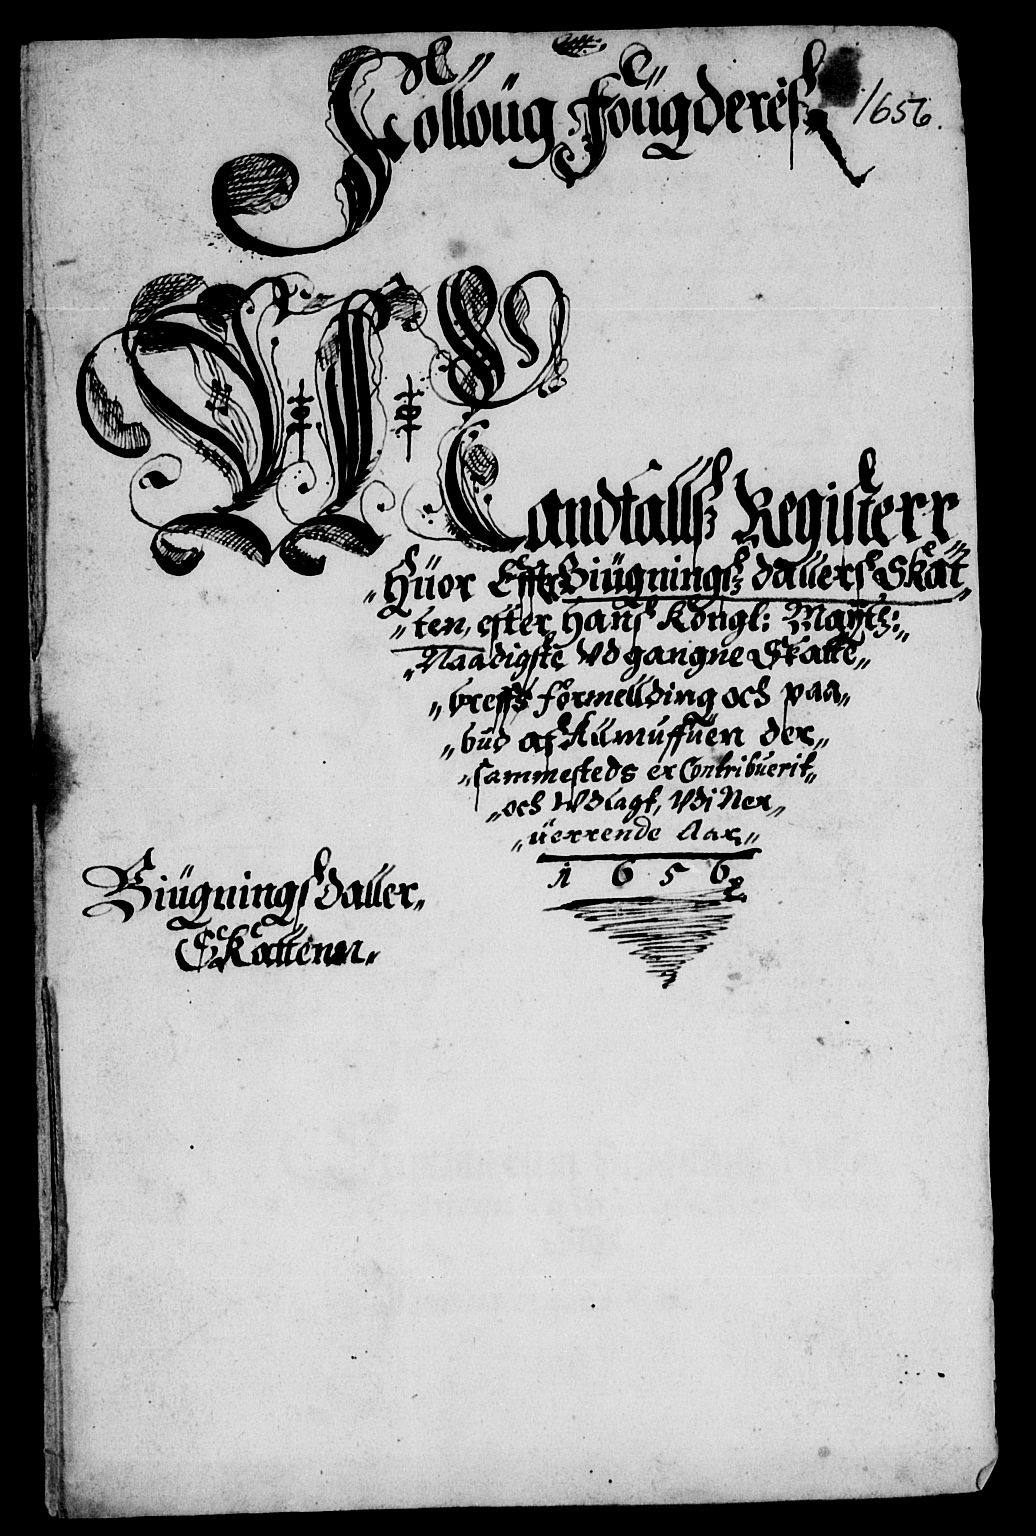 Folloüg foügderies 1656.
Mandtallsz Registerr
Hüor Effter Biügningsz dallers Skat
ten, efter Hans Kongl: Maytz:
Naadigste Vdgangne Skatte
breffs formellding och paa
bud af Almuffuen der
sammesteds er Contribuerit
och Vdlagt, Vdi Ner
uerrende Aar
1656
Biügnings daller
Skattenn